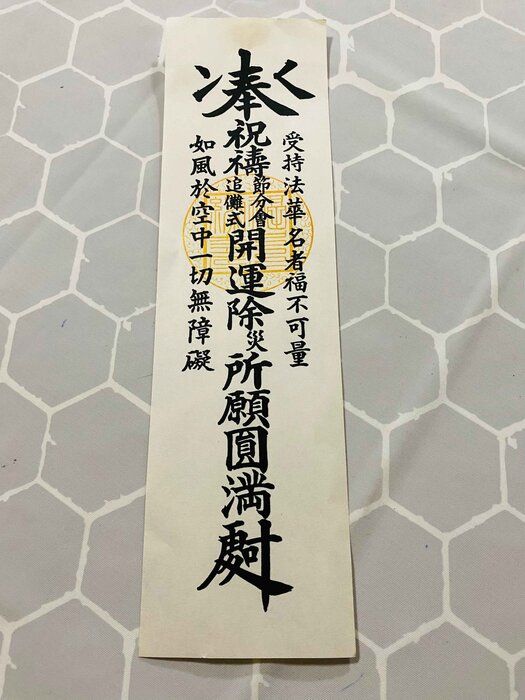 受持法華名者福不可量
奉祝禱
節分會
追儺式
開運除災所願圓満
如風於空中一切無障礙